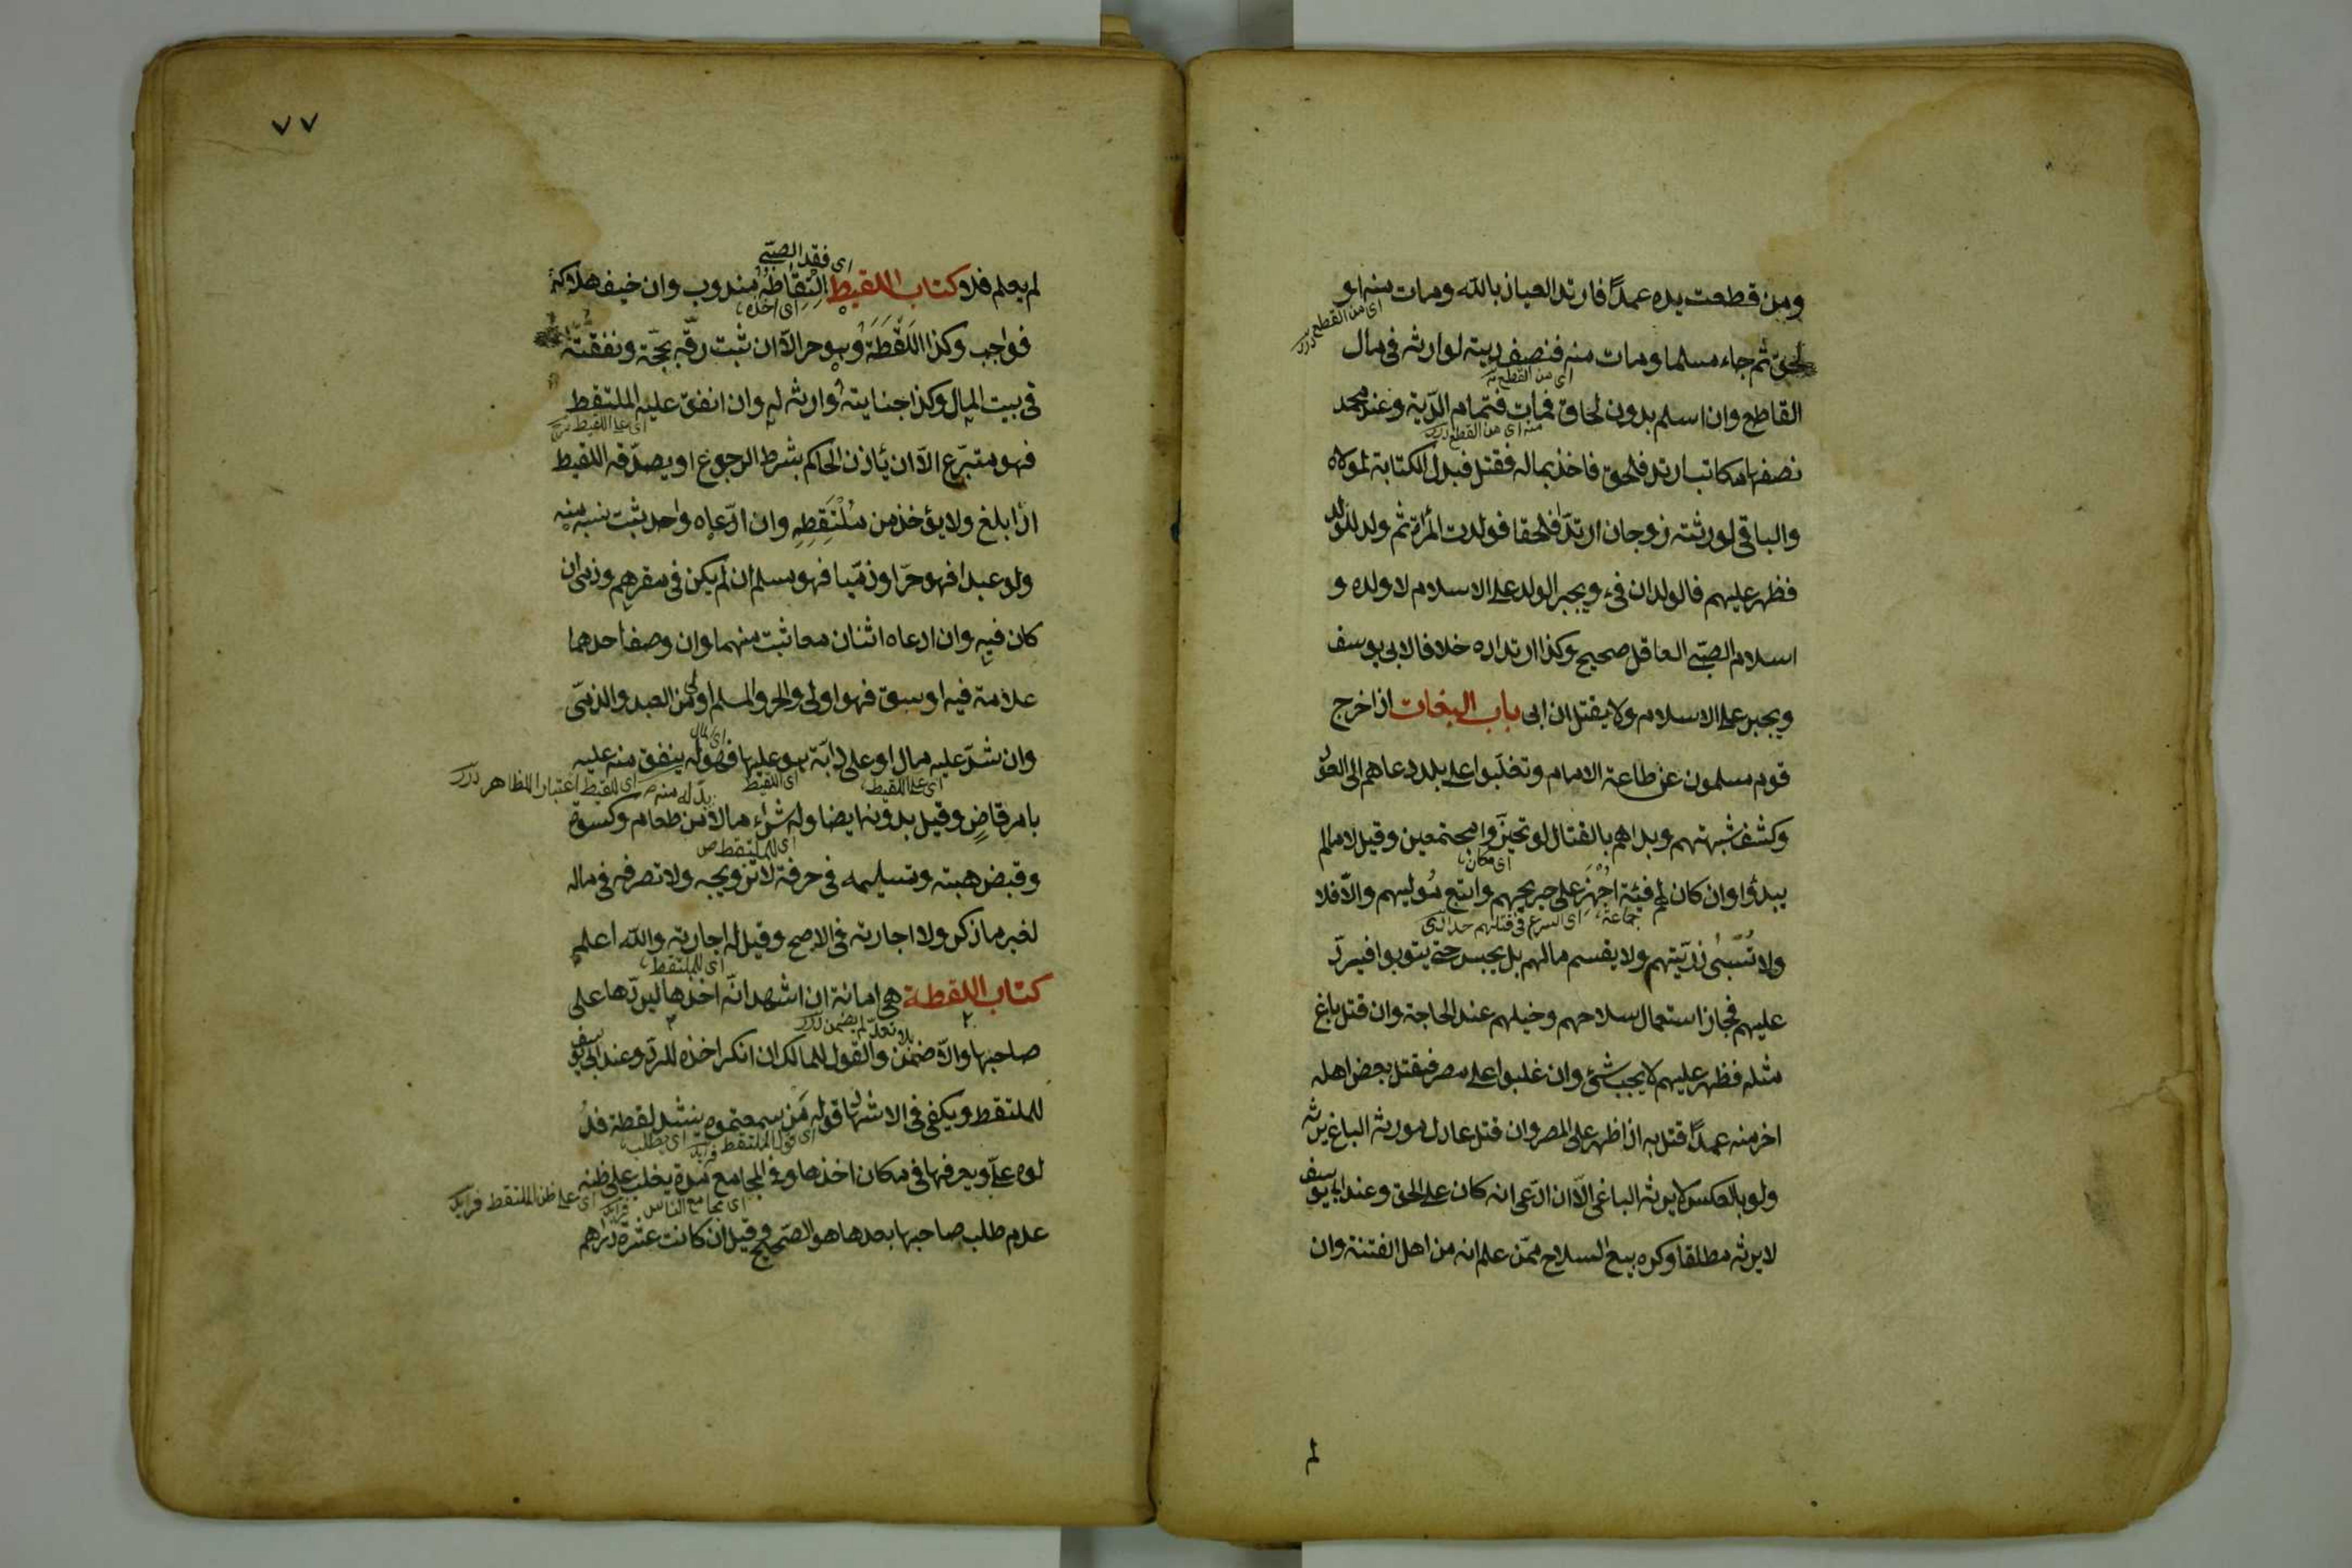 ومن قطعت يده عمدًا فارتد العياذ بالله ومات منه او
اى من القطع درر
لحق ثم جاء مسلما ومات منه فنصف ديته لوارثه فى مال
اى من القطع
القاطع وان اسلم بدون لحاق فمات فتمام الدّية وعند محمد
منه اى من القطع درر
نصفها مكاتب ارتد فلحق فاخذ بماله فقتل فبدل الكتابة لمولاه
والباقى لورثته زوجان ارتدّا فلحقا فولدت المرأة ثم ولد للولد
فظهر عليهم فالولدان فىء ويجبر الولد على الاسلام لا ولده و
اسلام الصبّى العاقل صحيح وكذا ارتداده خلافا لابى يوسف
ويجبر على الاسلام ولا يقتل ان ابى باب البغات اذا خرج
قوم مسلمون عن طاعة الامام وتغلّبوا على بلد دعاهم الى العود
وكشف شبهتهم وبداهم بالقتال لو تحيّزوا مجتمعين وقيل لا مالم
اى مكان
يبدؤا وان كان لهم فيئة اُجْهِزَ على جريحهم واتبع مُوليهم والّا فلا
جماعة اى اسرع فى قتلهم
ولا تُسْبٰى ذرّيتهم ولا يقسم مالهم بل يحبس حتى يتوبوا فيردّ
عليهم فجاز استعمال سلاحهم وخيلهم عند الحاجة وان قتل باغ
مثله فظهر عليهم لا يجب شئ وان غلبوا على مصر فقتل بعض اهله
اخر منه عمدًا قتل به اذا ظهر على المصر وان قتل عادل مورثه الباغى يرثه
ولو بالعكس لا يرثه الباغى الّا ان ادّعى انه كان على الحق وعند ابى يوسف
لا يرثه مطلقا وكره بيع السلاح ممّن علم انه من اهل الفتنة وان
لم
٧٧
اى فقد الصبّى
لم يعلم فلا كتاب اللقيط اِلْتِقَاطُهُ مندوب وان خيف هلاكه
اى اخذه
فواجب وكذا اللُّقَطَة وهو حر الّا ان ثبت رقّه بحجّة ونفقته
فى بيت المال وكذا جنايته وارثه له وان انفق عليه الملتقط
اى على اللقيط
فهو متبرّع الّا ان يأذن الحاكم بشرط الرجوع او يصدّقه اللقيط
اذا بلغ ولا يؤخذ من مُلْتَقِطِهِ وان ادّعاه واحد ثبت نسبه منه
ولو عبدا فهو حرّ او ذمّيا فهو مسلم ان لم يكن فى مقرهم وذمى ان
كان فيه وان ادعاه اثنان معا ثبت منهما وان وصف احدهما
علامة فيه او سبق فهو اولى والحر والمسلم اولى من العبد والذمّى
اى المال
وان شدّ عليه مال او على دابّة هو عليها فهو له ينفق منه عليه
اى على اللقيط اى اللقيط بدله منه اى للقيط اعتبارا للظاهر درر
بامر قاضٍ وقيل بدونه ايضا وله شراء مالا من طعام وكسوة
اى للملتقط
وقبض هبته وتسليمه فى حرفة لا تزويجه ولا تصرفه فى ماله
لغير ما ذكر ولا اجارته فى الاصح وقيل له اجارته والله اعلم
اى للملتقط
كتاب اللقطة هى امانة ان اشهد انّه اخذها ليردّها على
بلا تعدّ لم يضمن درر
صاحبها والّا ضمن والقول للمالك ان انكر اخذه للردّ وعند ابى يوسف
للملتقط ويكفى فى الاشهاد قوله مَن سمعتموه ينشد لقطة فدُ
اى قول الملتقط اى يطلب
لوه علىّ ويعرفها فى مكان اخذها وفى المجامع مدة يغلب على ظنه
اى مجامع الناس اى على ظن الملتقط
عدم طلب صاحبها بعدها هو الصحيح وقيل ان كانت عشرة دراهم